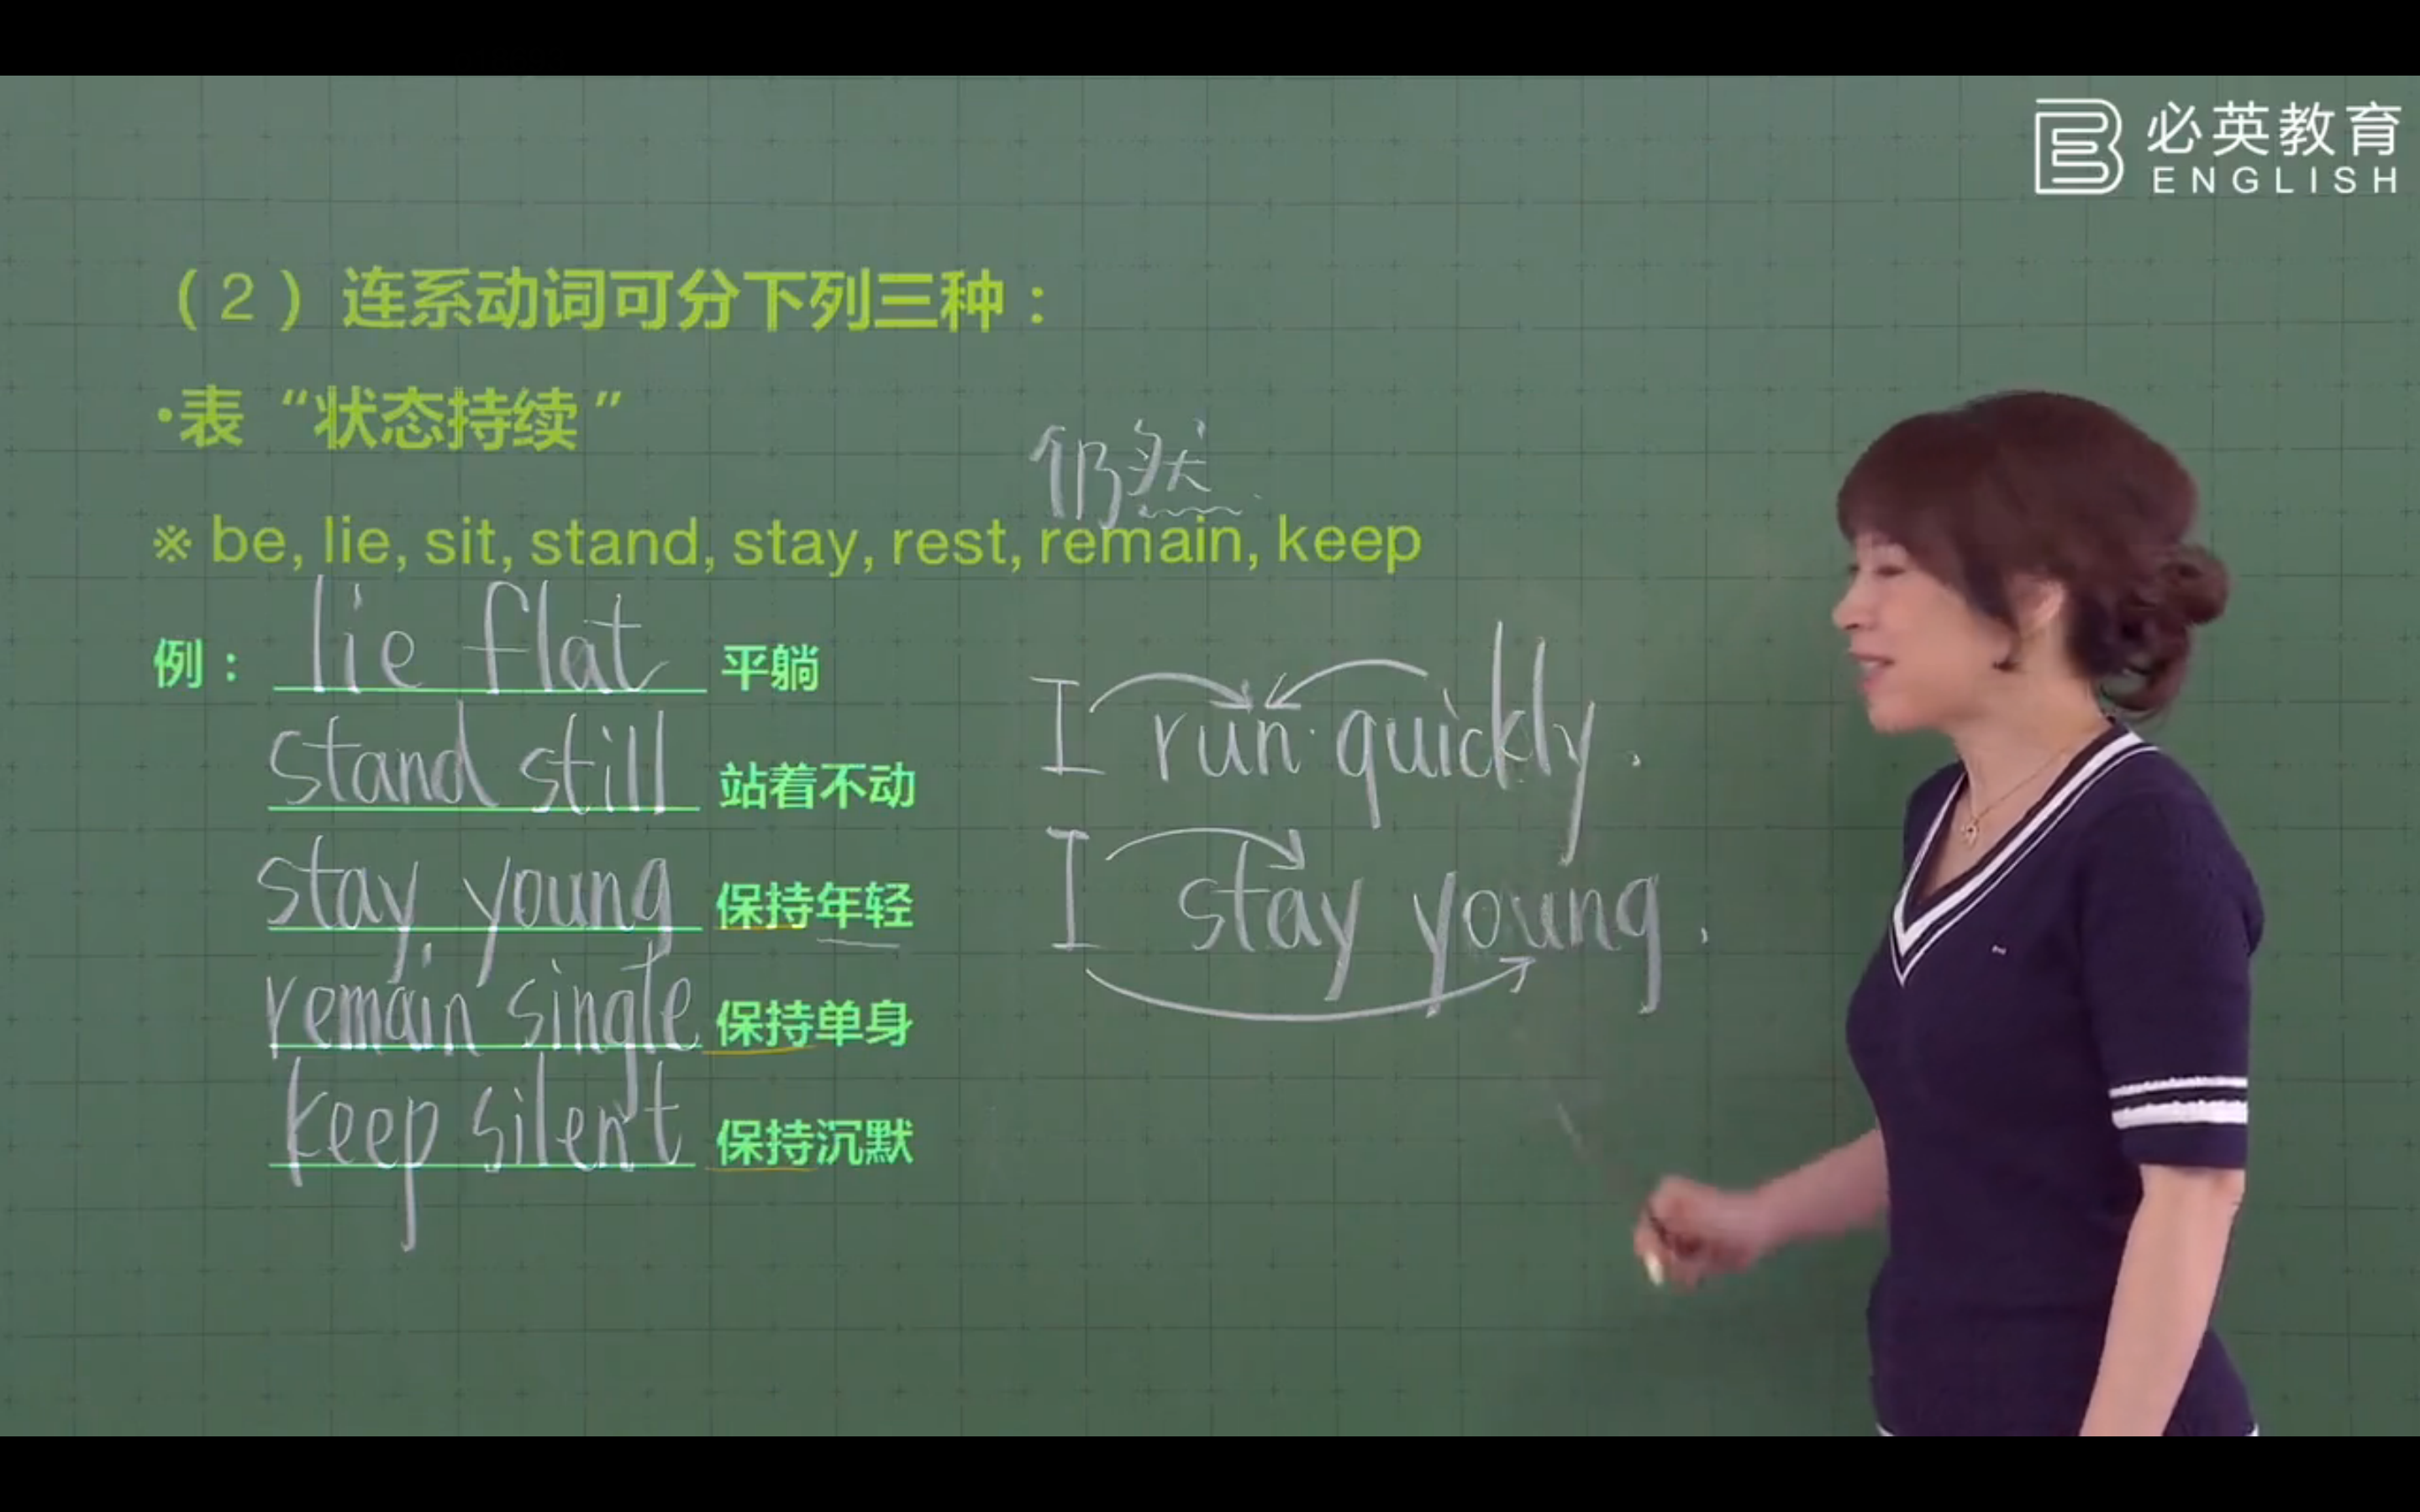 必英教育
ENGLISH
（2）连系动词可分下列三种：
·表“状态持续”
仍然
※ be, lie, sit, stand, stay, rest, remain, keep
例： lie flat 平躺
stand still 站着不动
stay young 保持年轻
remain single 保持单身
keep silent 保持沉默
I run quickly.
I stay young.